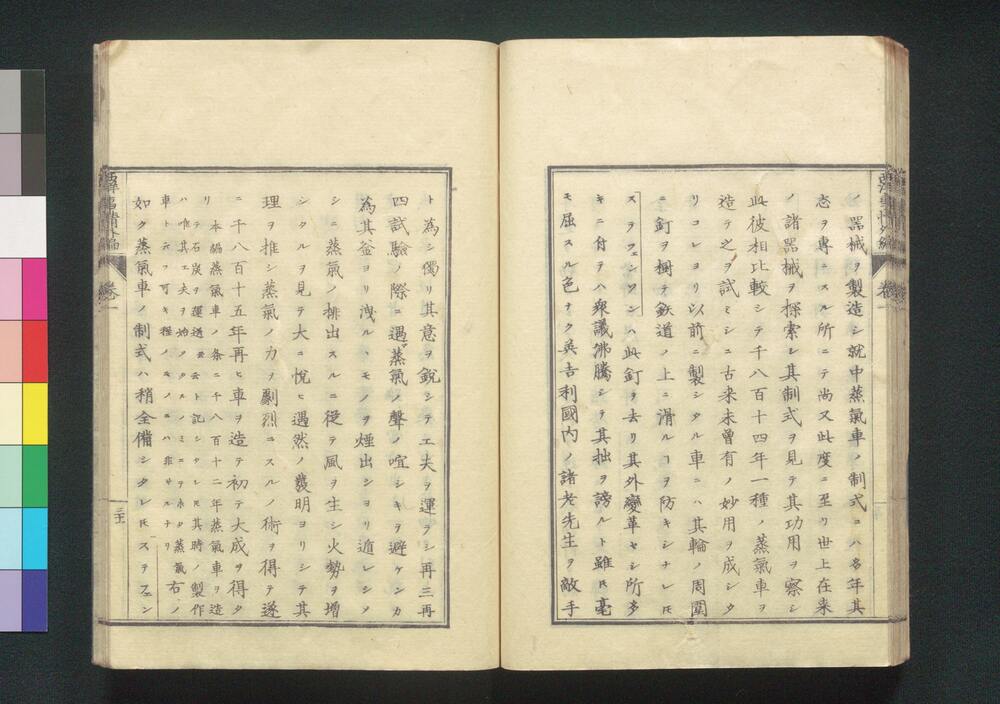 ノ器械ヲ製造シ就中蒸氣車ノ制式ニハ多年其
志ヲ專ニスル所ニテ尚又此度ニ至リ世上在来
ノ諸器械ヲ探索シ其制式ヲ見テ其功用ヲ察シ
此彼相比較シテ千八百十四年一種ノ蒸氣車ヲ
造テ之ヲ試ミシニ古来未曾有ノ妙用ヲ成シタ
リコレヨリ以前ニ製シタル車ニハ其輪ノ周圍
ニ釘ヲ樹テ鉄道ノ上ニ滑ルヿヲ防キシナレ𪜈
スヲフェンソンハ此釘ヲ去リ其外變革セシ所多
キニ付テハ衆議沸騰シテ其拙ヲ謗ルト雖𪜈毫
モ屈スル色ナク英吉利國内ノ諸老先生ヲ敵手
ト為シ獨リ其意ヲ銳シテ工夫ヲ運ラシ再三再
四試驗ノ際ニ遇〻蒸氣ノ聲ノ喧シキヲ避ケンカ
為其釜ヨリ洩ル、モノヲ煙出シヨリ遁レシメ
シニ蒸氣ノ排出スルニ從テ風ヲ生シ火勢ヲ増
シタルヲ見テ大ニ悅ヒ遇然ノ發明ヨリシテ其
理ヲ推シ蒸氣ノ力ヲ劇烈ニスルノ術ヲ得テ遂
ニ千八百十五年再ヒ車ヲ造テ初テ大成ヲ得タ
リ
本編蒸氣車ノ条ニ千八百十二年蒸氣車ヲ造
リテ石炭ヲ運送云云ト記シタレ𪜈其時ノ製作
ハ唯其工夫ヲ始メタルノミニテ未タ蒸氣
車ト云フ可キ程ノモノニハ非サルナリ
右ノ
如ク蒸氣車ノ制式ハ稍全備シタレ𪜈ステフェン
卷一
卷一